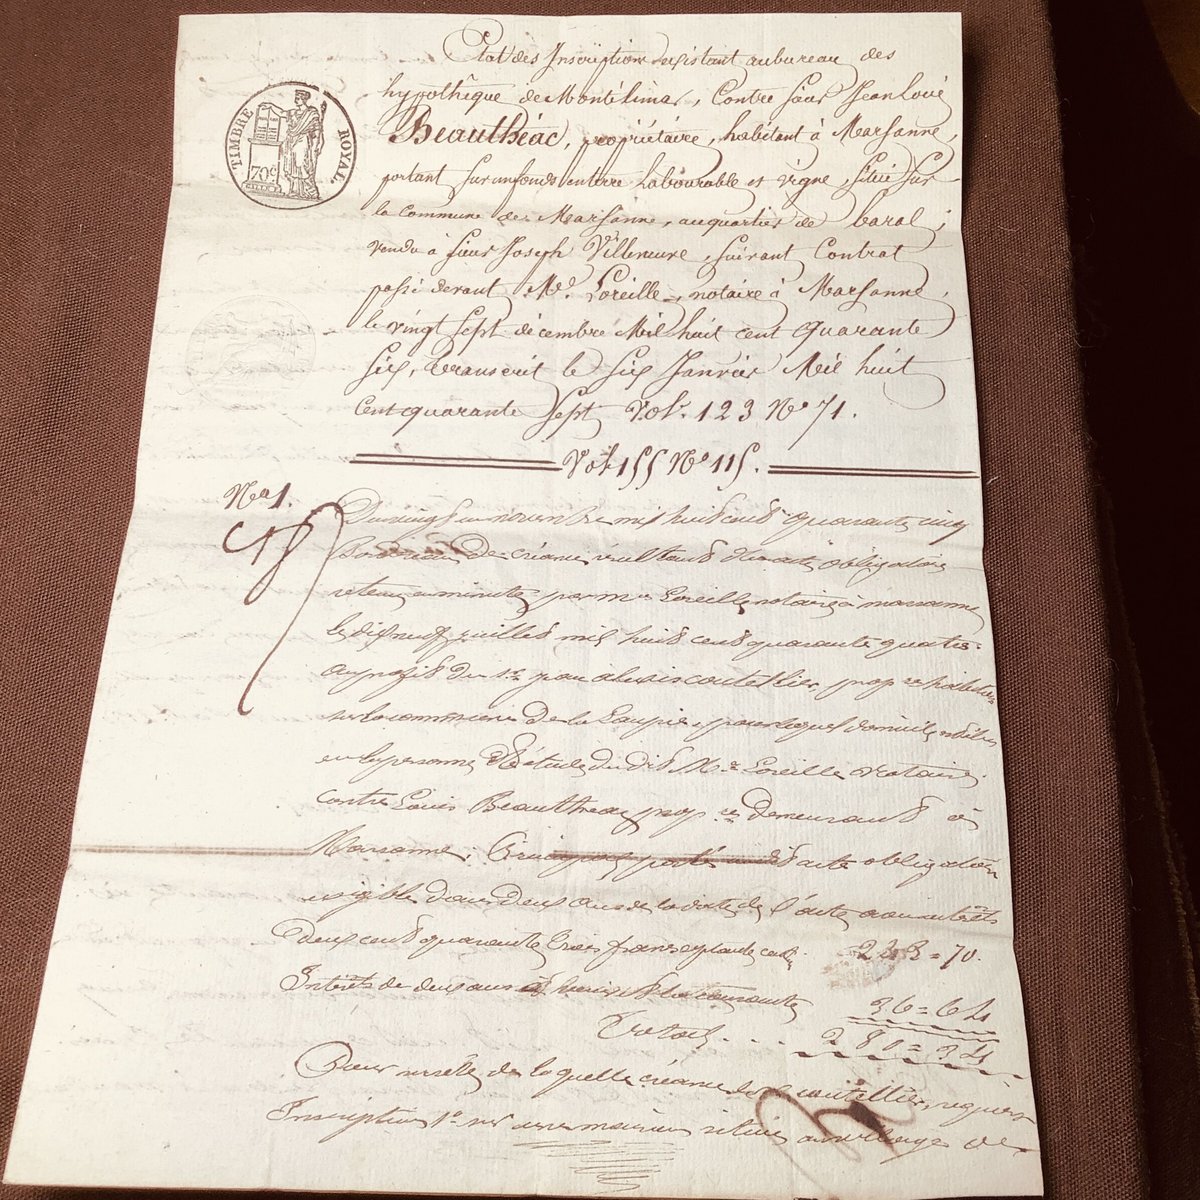 TIMBRE ROYAL.
70c
Etat des Inscriptions existant au bureau des
hypothêque de Montélimar, Contre sieur Jean Louis
Beauthéac, propriétaire, habitant à Marsanne,
portant sur un fonds en terre Labourable et vigne, situé sur
la commune de Marsanne, au quartier de
vendu à sieur Joseph Villeneuve, suivant Contrat
passé devant Me. Loreille, notaire à Marsanne,
le vingt sept décembre Mil huit cent quarante
six, transcrit le six Janvier Mil huit
cent quarante sept Vol. 123 No 71.
Vol 155 No 115.
No 1.
Du vingt un novembre mil huit cent quarante cinq
Bordereau de créance résultant d'un acte obligatoire
retenu en minute par me Loreille notaire à marsanne
le dix neuf juillet mil huit cent quarante quatre
au profit du sr jean coutellier, propre
sur la commune de la Laupie, pour lequel domicile
en la personne Etude du dit Mr Loreille notaire
contre Louis Beauthéac propre demeurant à
Marsanne. Principal porté dit acte obligation
exigible dans deux ans de la date de l'acte
deux cent quarante trois francs 243=70.
Intérêts de deux ans et courante 36=64
Total... 280=34
Pour sureté de la quelle créance le sr coutellier requiert
Inscription 1o sur une maison située au village de